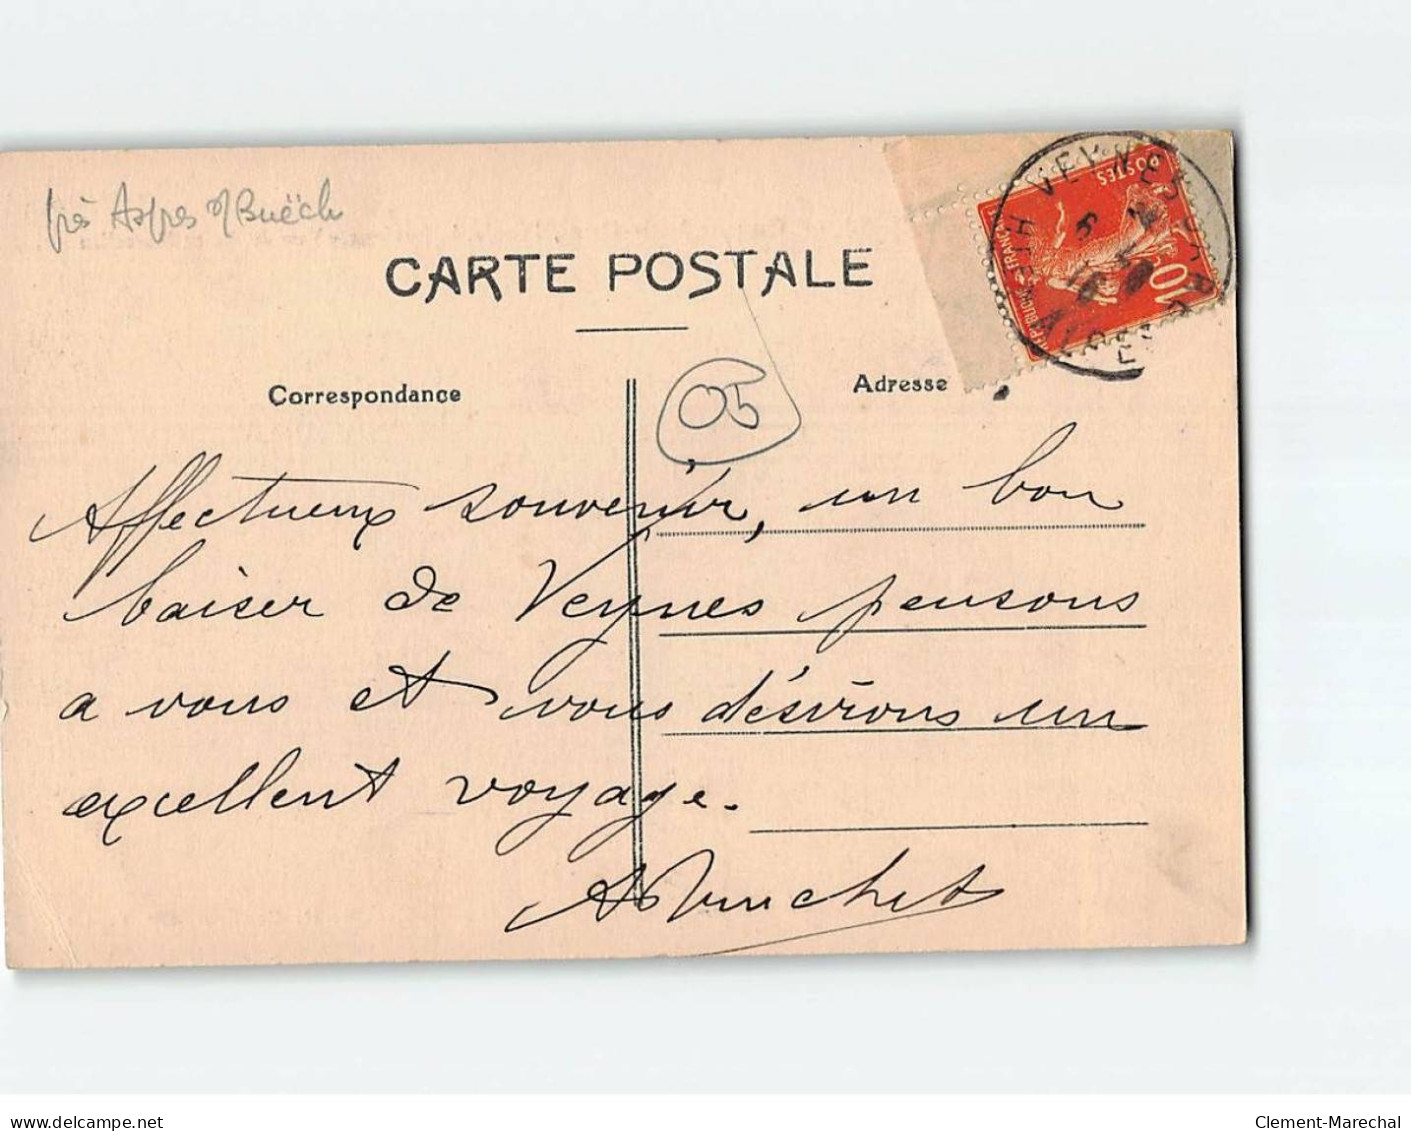 près Aspres s/ Buëch
CARTE POSTALE
Correspondance
Adresse
05
POSTES
10
VEYNES
HTES ALPES
Affectueux souvenir, un bon
baiser de Veynes pensons
a vous et vous désirons un
excellent voyage.
delcampe.net
Clement-Marechal